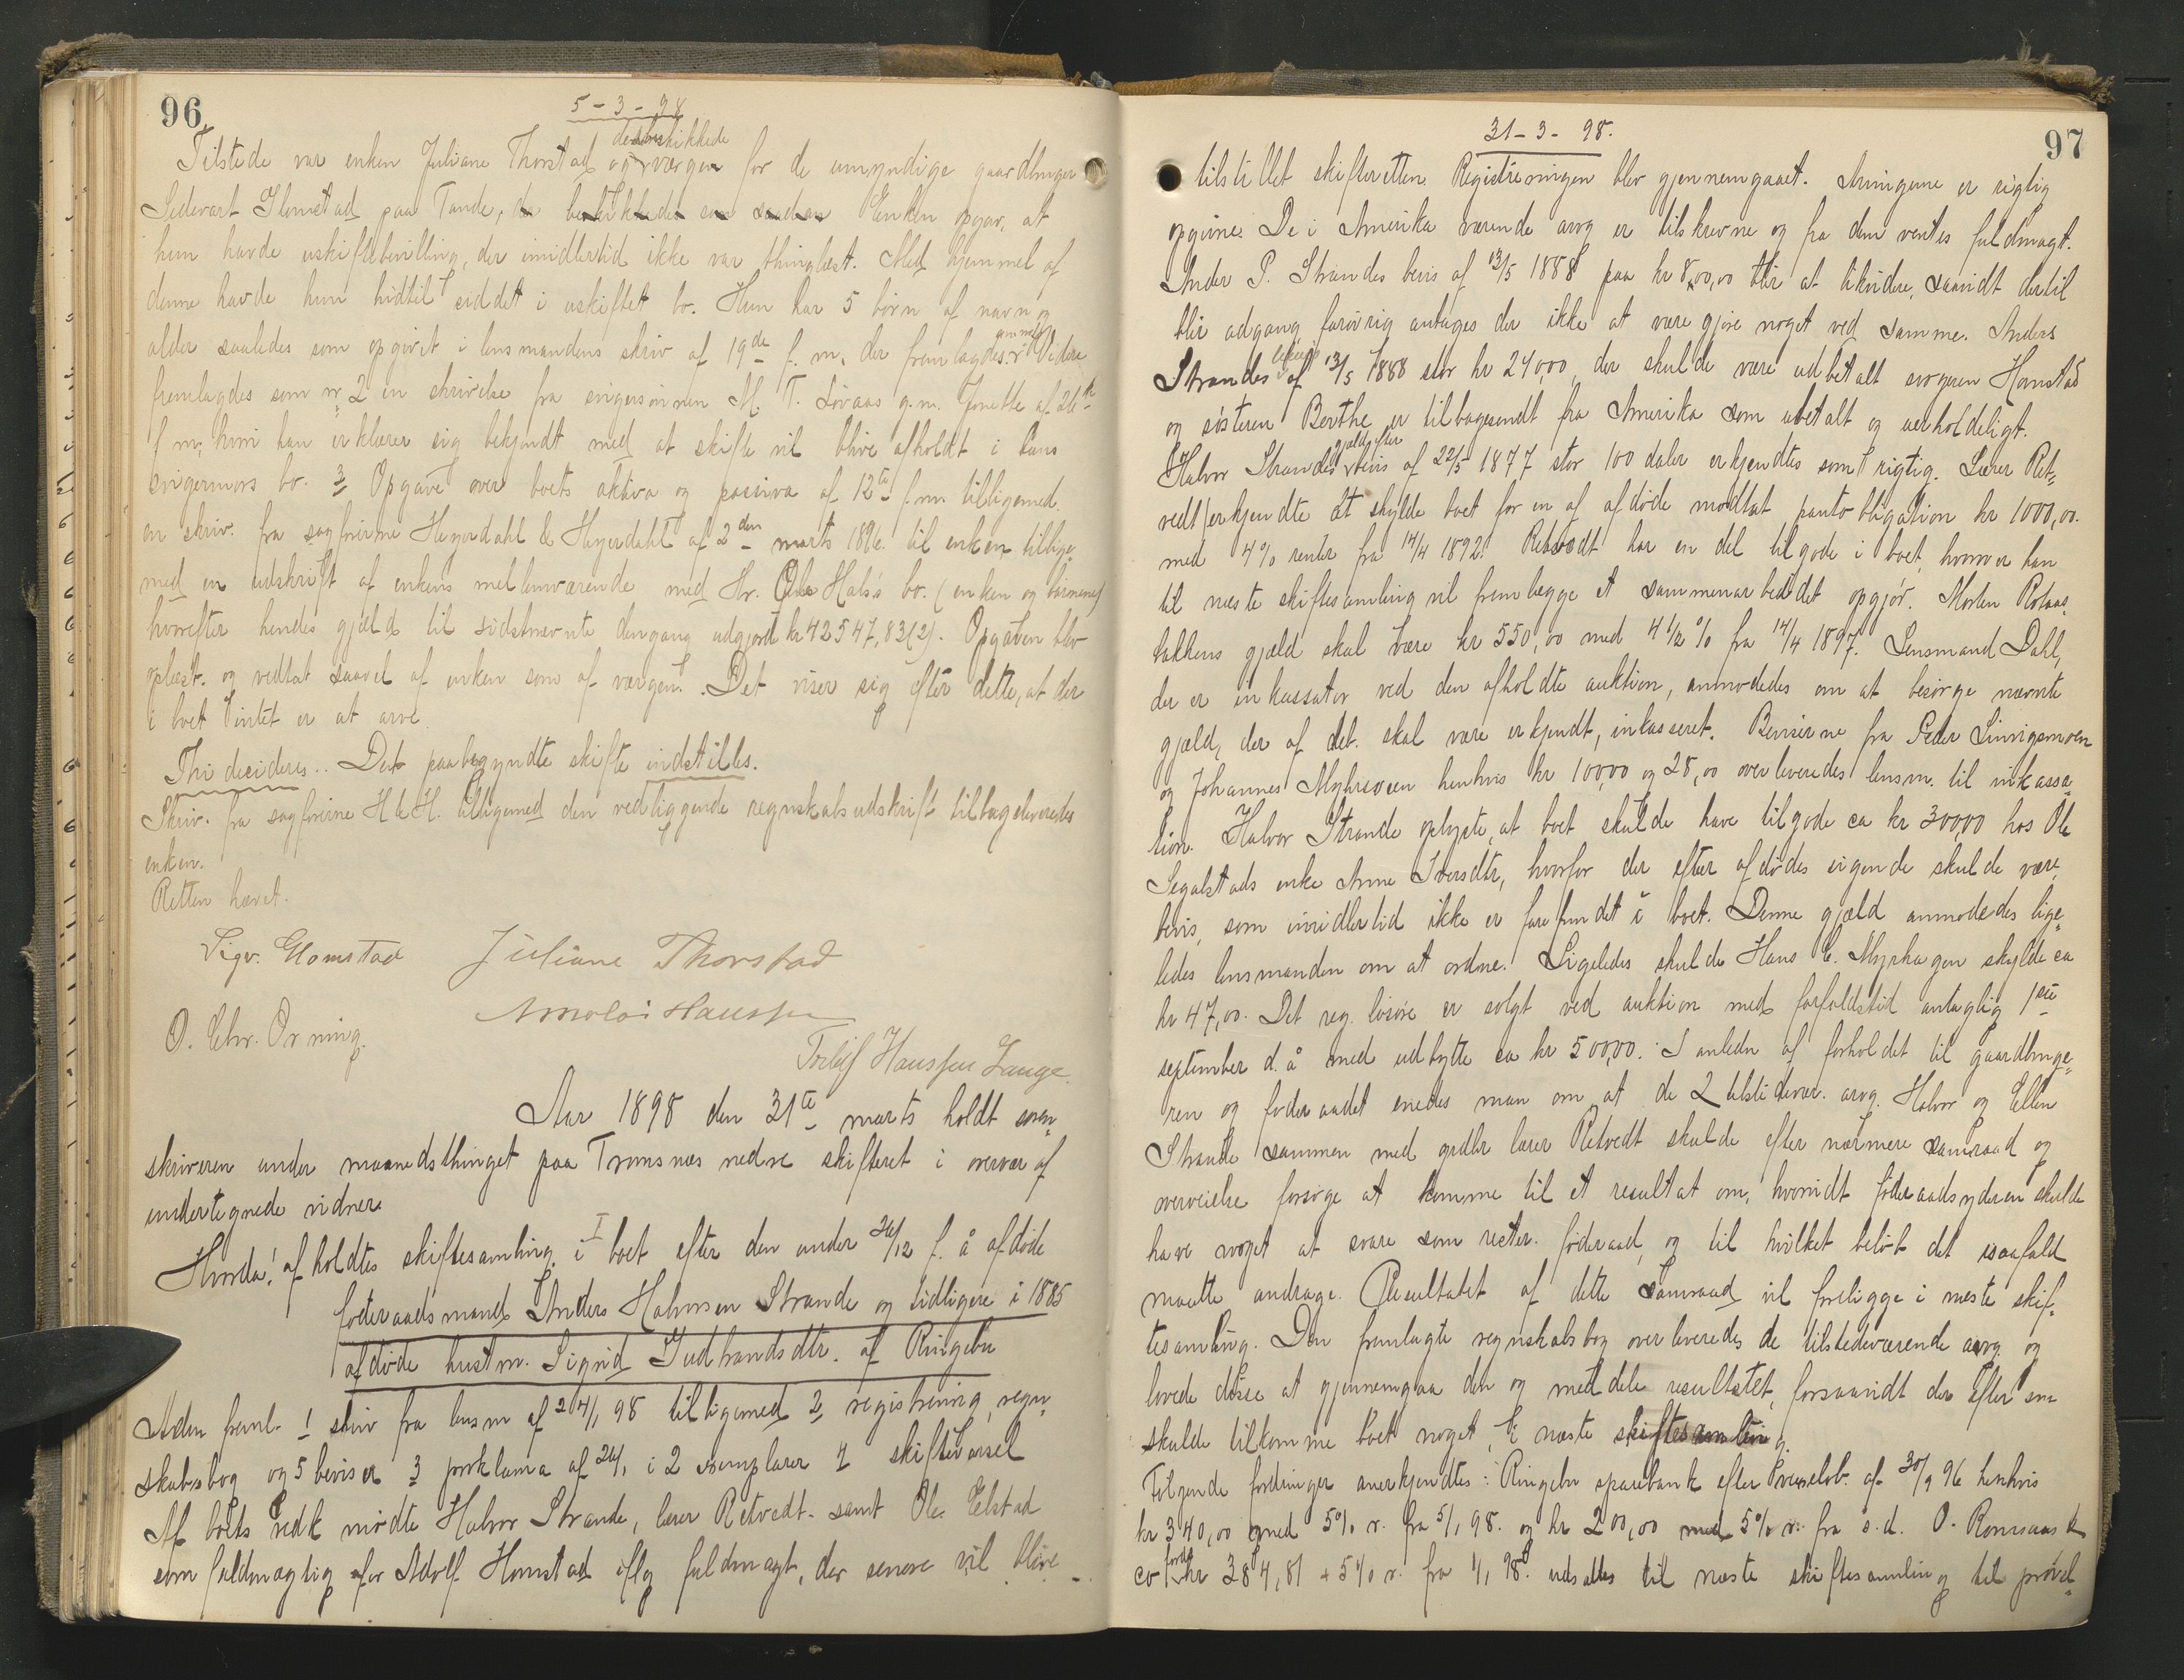 96
5-3-98
Tilstede var enken Juliane Thorstad og den beskikkede værgen for de umyndige gaardbruger
Sedevart Glomstad paa Tande, der beskikkedes som saadan Enken opgav, at
hun havde uskiftebevilling, der imidlertid ikke var thinglæst. Med hjemmel af
denne havde hun hidtil siddet i uskiftet bo. Hun har 5 børn af navn og
alder saaledes som opgivet i lensmandens skriv af 19de f. m. der fremlagdes. Videre
fremlagdes som nr 2 en skrivelse fra svigersønnen M. T. Løvaas g. m. Jonette af 26de
f m, hvori han erklærer sig bekjendt med at skifte vil blive afholdt i hans
svigermors bo. 3 Opgave over boets aktiva og passiva af 12te f. m. tilligemed
en skriv. fra sagførerne Heyerdahl & Heyerdahl af 2den marts 1896. til enken tillige
med en udskrift af enkens mellemværende med Hr. Ole Hals's bo. (enken og børnene)
hvorefter hendes gjæld til sidstnævnte dengang udgjorde kr 42547,83(2). Opgaven blev
oplæst. og vedtat saavel af enken som af værgen. Det viser sig efter dette, at der
i boet intet er at arve.
Thi decideres.. Det paabegyndte skifte indstilles.
Skriv. fra sagførerne H & H. tilligemed den vedliggende regnskabsudskrift tilbageleveredes
enken.
Retten hævet.
Sigv. Glomstad Juliane Thorstad
O. Chr. Orning. Arnoldi Hanssen
Hanssen Lange.
Aar 1898 den 31te marts holdt soren-
skriveren under maanedsthinget paa Tromsnæs nedre skifteret i overvær af
undertegnede vidner
Hvorda! afholdtes skiftesamling I i boet efter den under 26/12 f. å afdøde
føderaadsmand Anders Halvorsen Strande og tidligere i 1885
afdøde hustru. Sigrid Gudbrandsdtr. af Ringebu
Adm freml. 1 skriv fra lensm af 24/1 98 tilligemed 2, registrering, regn-
skabsbog og 5 beviser 3 proklama af 24/1 i 2 exemplarer 4 skiftevarsel
Af boets vedk mødte Halvor Strande, lærer Retvedt. samt Ole Elstad
som fuldmægtig for Adolf Homstad iflg fuldmagt, der senere vil blive
97
31-3-98.
tilstillet skifteretten. Registreringen blev gjennemgaaet. Arvingerne er rigtig
opgivne. De i Amerika værende arvg er tilskrevne og fra dem ventes fuldmagt.
Ander P. Strandes bevis af 13/5 1888 paa kr 800,00 blir at likvidere, saavidt dertil
blir adgang, forøvrig antages der ikke at være gjøre noget ved samme. Anders
Strandes af 13/5 1888 stor kr 240,00, der skulde være udbetalt svogeren Homstad
og søsteren Berthe er tilbagesendt fra Amerika som ubetalt og uerholdeligt.
Halvor Strandes gjæld efter bevis af 22/5 1877 stor 100 daler erkjendtes som rigtig. Lærer Ret-
vedt erkjendte at skylde boet for en af afdøde modtat pantobligation kr 1000,00.
med 4% renter fra 14/4 1892. Retvedt har en del tilgode i boet, hvorover han
til næste skiftesamling vil fremlægge et sammenarbeidet opgjør. Morten Rolaas-
bakkens gjæld skal være kr 550,00 med 4 1/2 % fra 14/4 1897. Lensmand Dahl,
der er inkassator ved den afholdte auktion, anmodedes om at besørge nævnte
gjæld, der af deb. skal være erkjendt, inkasseret. Beviserne fra Peder Linvigsmoen
og Johannes Myhrsveen henhvis kr 100,00 og 28,00 overleveredes lensm. til inkassa-
tion. Halvor Strande oplyste, at boet skulde have tilgode ca kr 300,00 hos Ole
Segalstads enke Anne Iversdtr, hvorfor der efter afdødes sigende skulde være
bevis, som imidlertid ikke er forefundet i boet. Denne gjæld anmodedes lige-
ledes lensmanden om at ordne. Ligeledes skulde Hans C. Myrhagen skylde ca
kr 47,00. Det reg. løsøre er solgt ved auktion med forfaldstid antaglig 1ste
september d. å med udbytte ca kr 500,00. I anledn af forholdet til gaardbruge-
ren og føderaadet enedes man om at de 2 tilstedevær. arvg. Halvor og Ellen
Strande sammen med grdbr lærer Retvedt skulde efter nærmere samraad og
overveielse forsøge at komme til et resultat om, hvorvidt føderaadsyderen skulde
have noget at svare som rester. føderaad, og til hvilket beløb det isaafald
maatte andrage. Resultatet af dette samraad vil foreligge i næste skif-
tesamling. Den fremlagte regnskabsbog overleveredes de tilstedeværende arvg og
lovede disse at gjennemgaa den og meddele resultatet, forsaavidt der efter den
skulde tilkomme boet noget, i næste skiftesamling.
Følgende fordringer anerkjendtes: Ringebu sparebank efter vexelob. af 30/9 96 henhvis
kr 340,00 med 5% r. fra 5/1 98. og kr 200,00 med 5% r. fra s.d. O. Romsaas &
co fordr kr 384,81 + 5% r. fra 1/1 98. udsattes til næste skiftesamling til prøvel-